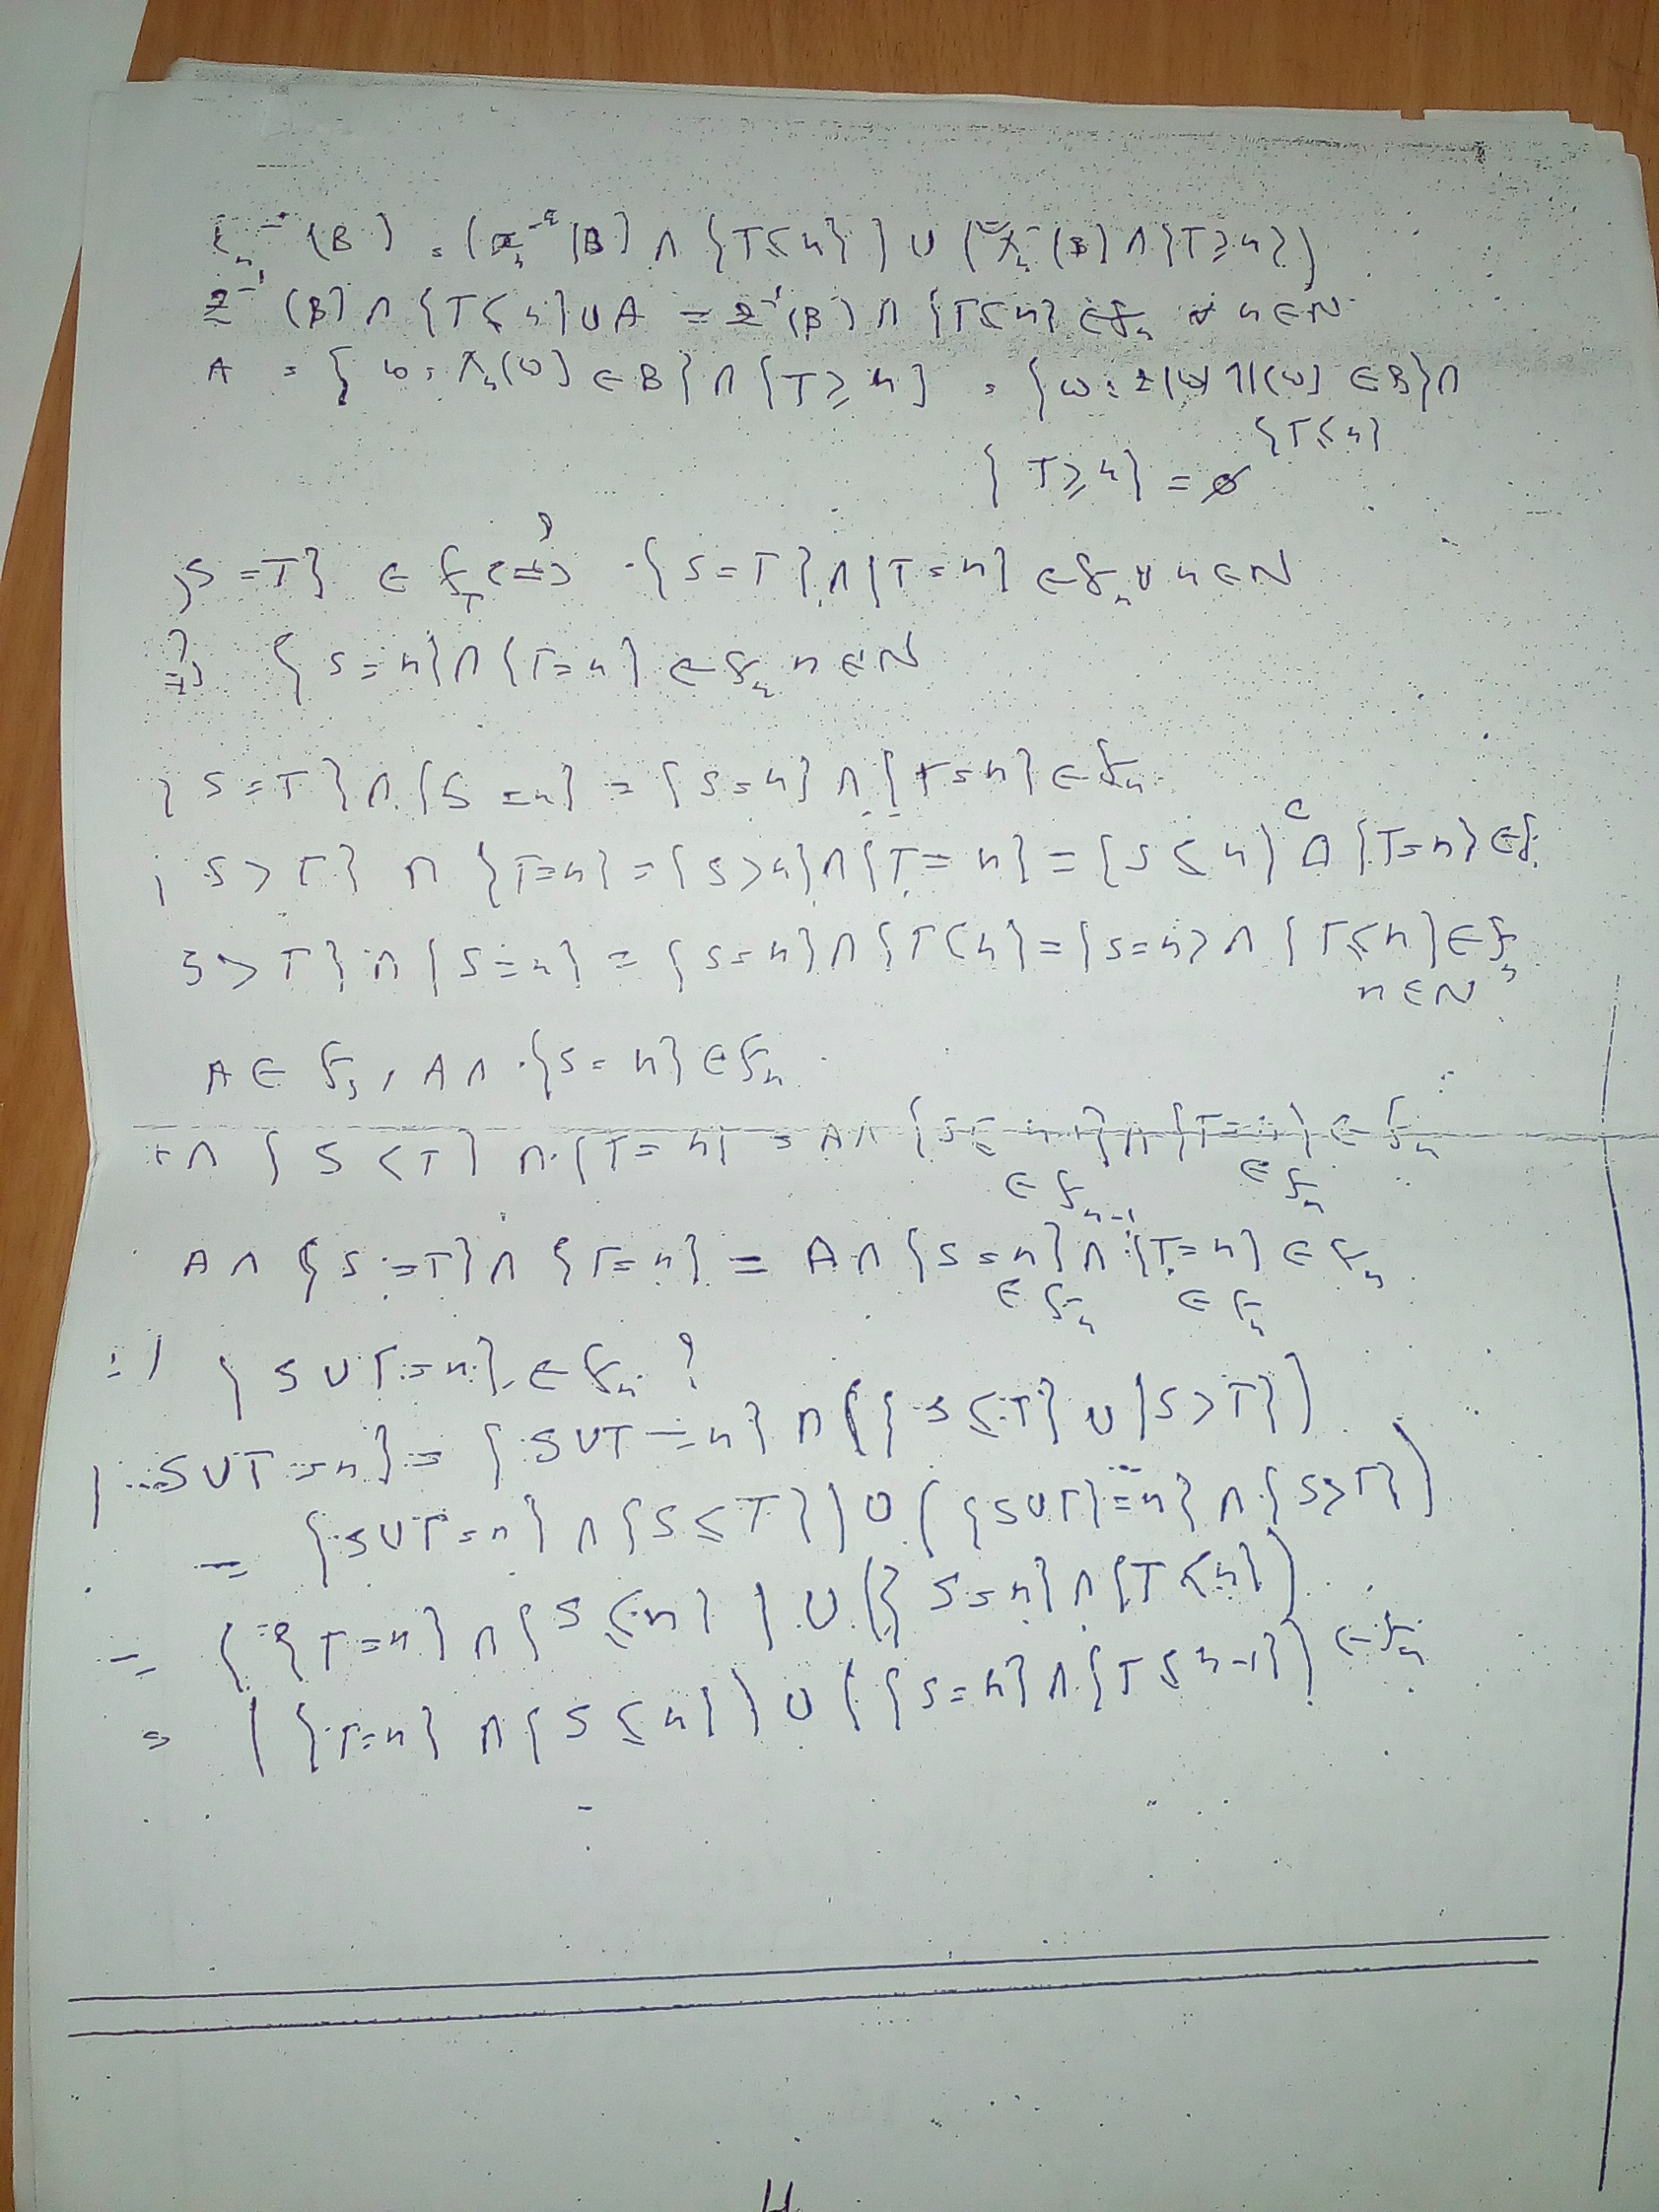 (B) = ( (B) ∩ {T≤n} ) ∪ ( (B) ∩ {T≥n} )
z⁻¹ (B) ∩ {T≤n} ∪ A = z⁻¹(B) ∩ {T≤n} ∈ Fₙ ∀ n∈N
A = { ω: Xₙ(ω) ∈ B} ∩ {T≥n} = {ω: z(ω) 1(ω) ∈ B} ∩
{T≤n}
{ T≥n} = ∅
S=T} ∈ F_T <=> {S=T} ∩ {T=n} ∈ Fₙ ∀ n∈N
? => {S=n} ∩ {T=n} ∈ Fₙ n∈N
S=T} ∩ {S=n} = {S=n} ∩ {T=n} ∈ Fₙ
S>T} ∩ {T=n} = {S>n} ∩ {T=n} = {S≤n}ᶜ ∩ {T=n} ∈ F
S>T} ∩ {S=n} = {S=n} ∩ {T<n} = {S=n} ∩ {T≤n} ∈ Fₙ
n∈N
A ∈ Fₛ, A ∩ {S=n} ∈ Fₙ
∩ {S<T} ∩ {T=n} = A ∩ {S≤n-1} ∩ {T=n} ∈ Fₙ
∈ Fₙ₋₁ ∈ Fₙ
A ∩ {S=T} ∩ {T=n} = A ∩ {S=n} ∩ {T=n} ∈ Fₙ
∈ Fₙ ∈ Fₙ
{S∪T=n} ∈ Fₙ ?
S∪T=n} = {S∪T=n} ∩ ({S≤T} ∪ {S>T})
= {S∪T=n} ∩ {S≤T}) ∪ ({S∪T}=n} ∩ {S>T})
= ({T=n} ∩ {S≤n}) ∪ ({S=n} ∩ {T<n})
= ({T=n} ∩ {S≤n}) ∪ ({S=n} ∩ {T≤n-1}) ∈ Fₙ